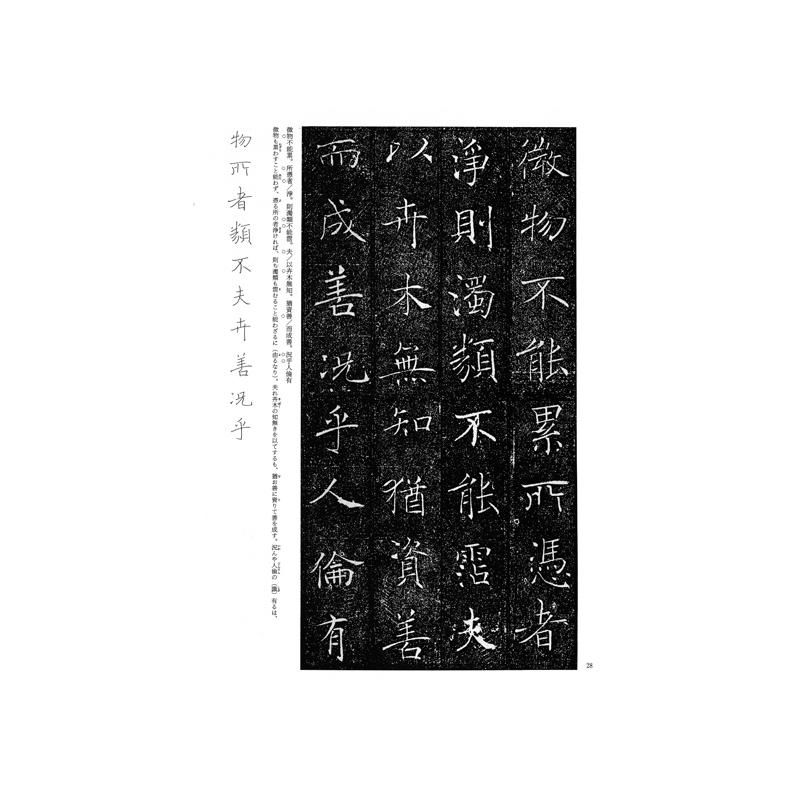 微物不能累所憑者
淨則濁類不能霑夫
以卉木無知猶資善
而成善況乎人倫有
微物不能累。所憑者/淨。則濁類不能霑。夫/以卉木無知。猶資善/而成善。況乎人倫有
微物も累わすこと能わず、憑る所の者淨ければ、則ち濁類も霑むること能わざるに(由るなり)。夫れ卉木の知無きを以てするも、猶お善に資りて善を成す。況んや人倫の(識)有るは、
物所者類不夫卉善況乎
28